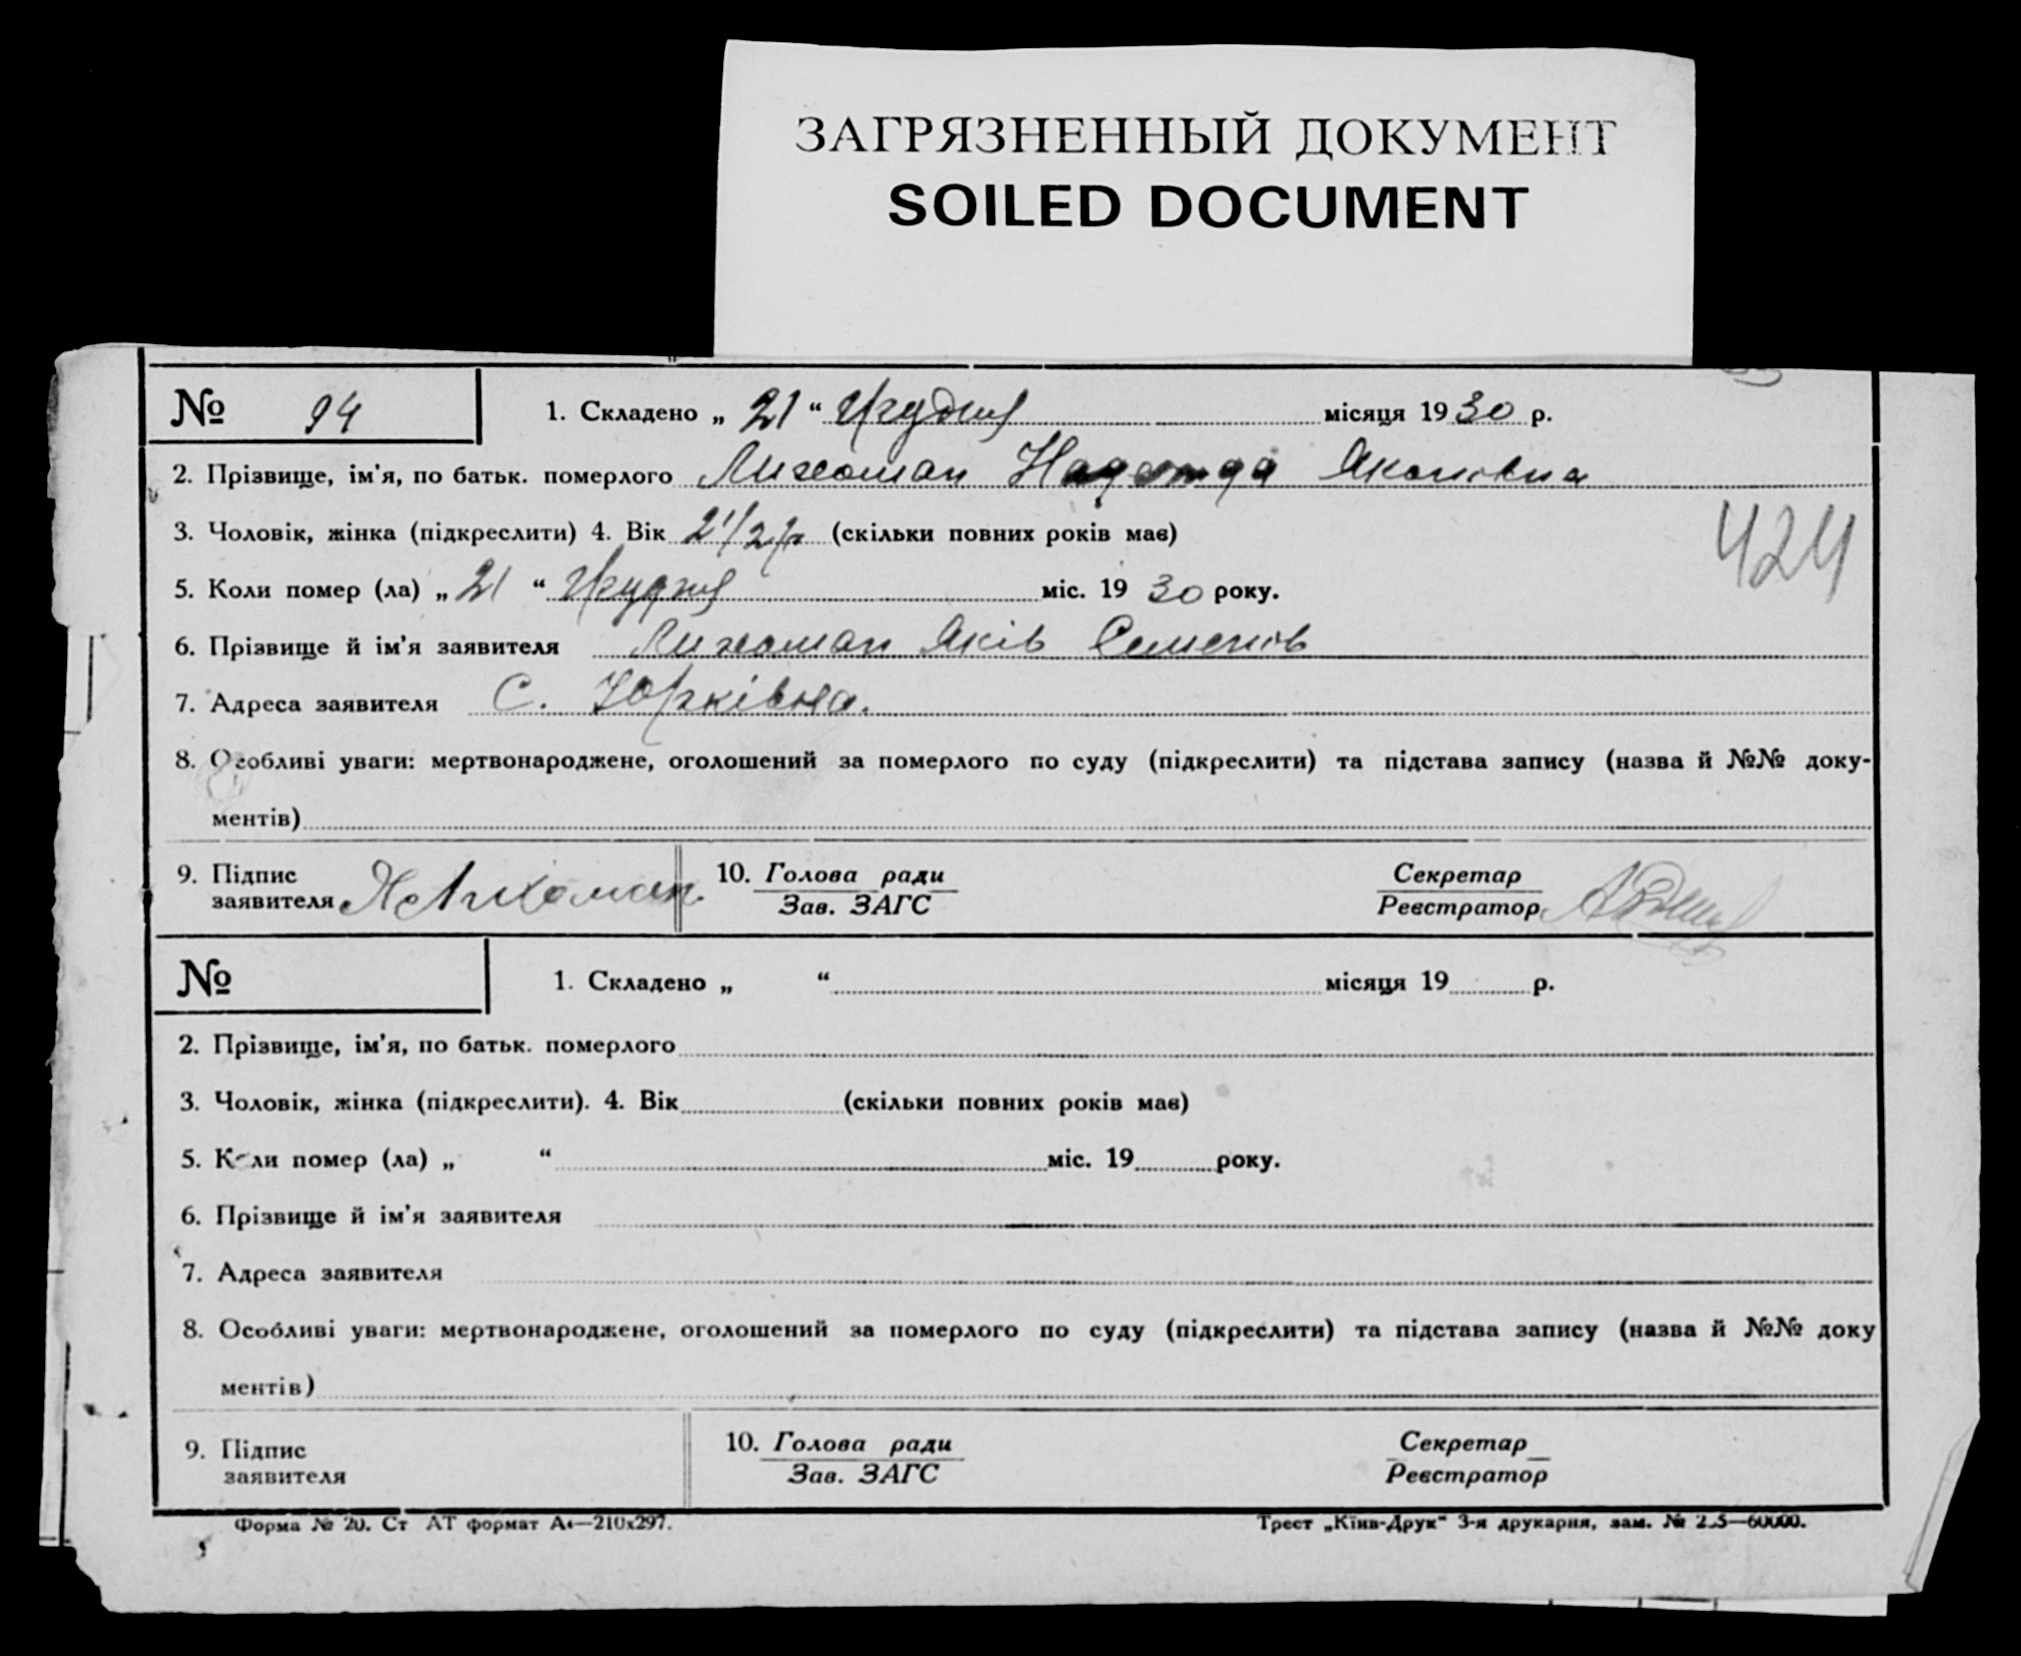 ЗАГРЯЗНЕННЫЙ ДОКУМЕНТ
SOILED DOCUMENT
№ 94 1. Складено „ 21 “ Грудня місяця 1930 р.
2. Прізвище, ім'я, по батьк. померлого Лихоман Надежда Яковівна
3. Чоловік, жінка (підкреслити) 4. Вік 2 1/2 р (скільки повних років має)
424
5. Коли помер (ла) „ 21 “ Грудня міс. 1930 року.
6. Прізвище й ім'я заявителя Лихоман Яків Семенов
7. Адреса заявителя С. Юрківка.
8. Особливі уваги: мертвонароджене, оголошений за померлого по суду (підкреслити) та підстава запису (назва й №№ доку-
ментів)
9. Підпис заявителя Я Лихоман 10. Голова ради Секретар
Зав. ЗАГС Реєстратор
№ 1. Складено „ “ місяця 19 р.
2. Прізвище, ім'я, по батьк. померлого
3. Чоловік, жінка (підкреслити). 4. Вік (скільки повних років має)
5. Коли помер (ла) „ “ міс. 19 року.
6. Прізвище й ім'я заявителя
7. Адреса заявителя
8. Особливі уваги: мертвонароджене, оголошений за померлого по суду (підкреслити) та підстава запису (назва й №№ доку
ментів)
9. Підпис заявителя 10. Голова ради Секретар
Зав. ЗАГС Реєстратор
Форма № 20. Ст АТ формат А4—210х297. Трест „Київ-Друк“ 3-я друкарня, зам. №